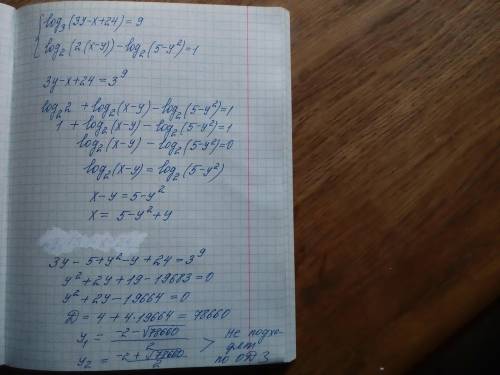 { log₃(3y-x+24)=9
log₂(2(x-y))-log₂(5-y²)=1
3y-x+24=3⁹
log₂2 + log₂(x-y)-log₂(5-y²)=1
1 + log₂(x-y) - log₂(5-y²)=1
log₂(x-y) - log₂(5-y²)=0
log₂(x-y)=log₂(5-y²)
x-y=5-y²
x= 5-y²+y
3y-5+y²-y+24=3⁹
y²+2y+19-19683=0
y²+2y-19664=0
D=4+4·19664=78660
y₁ = (-2-√78660)/2
y₂ = (-2+√78660)/2
> Не подхо-
дят
по ОДЗ